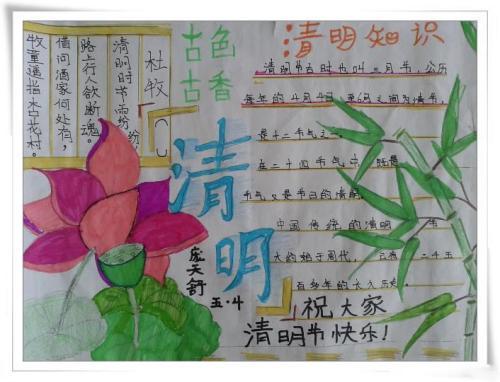 杜牧
清明时节雨纷纷,
路上行人欲断魂。
借问酒家何处有,
牧童遥指杏花村。
古色
古香
清明知识
清明节古时也叫三月节,公历
每年的4月4日至6日之间为清节,
是十二节气之一。
在二十四节气中,既是
节气又是节日的清明
中国传统的清明节
大约始于周代,已有二千五
百多年的历史。
清明
庞天舒
五·4
祝大家
清明节快乐!